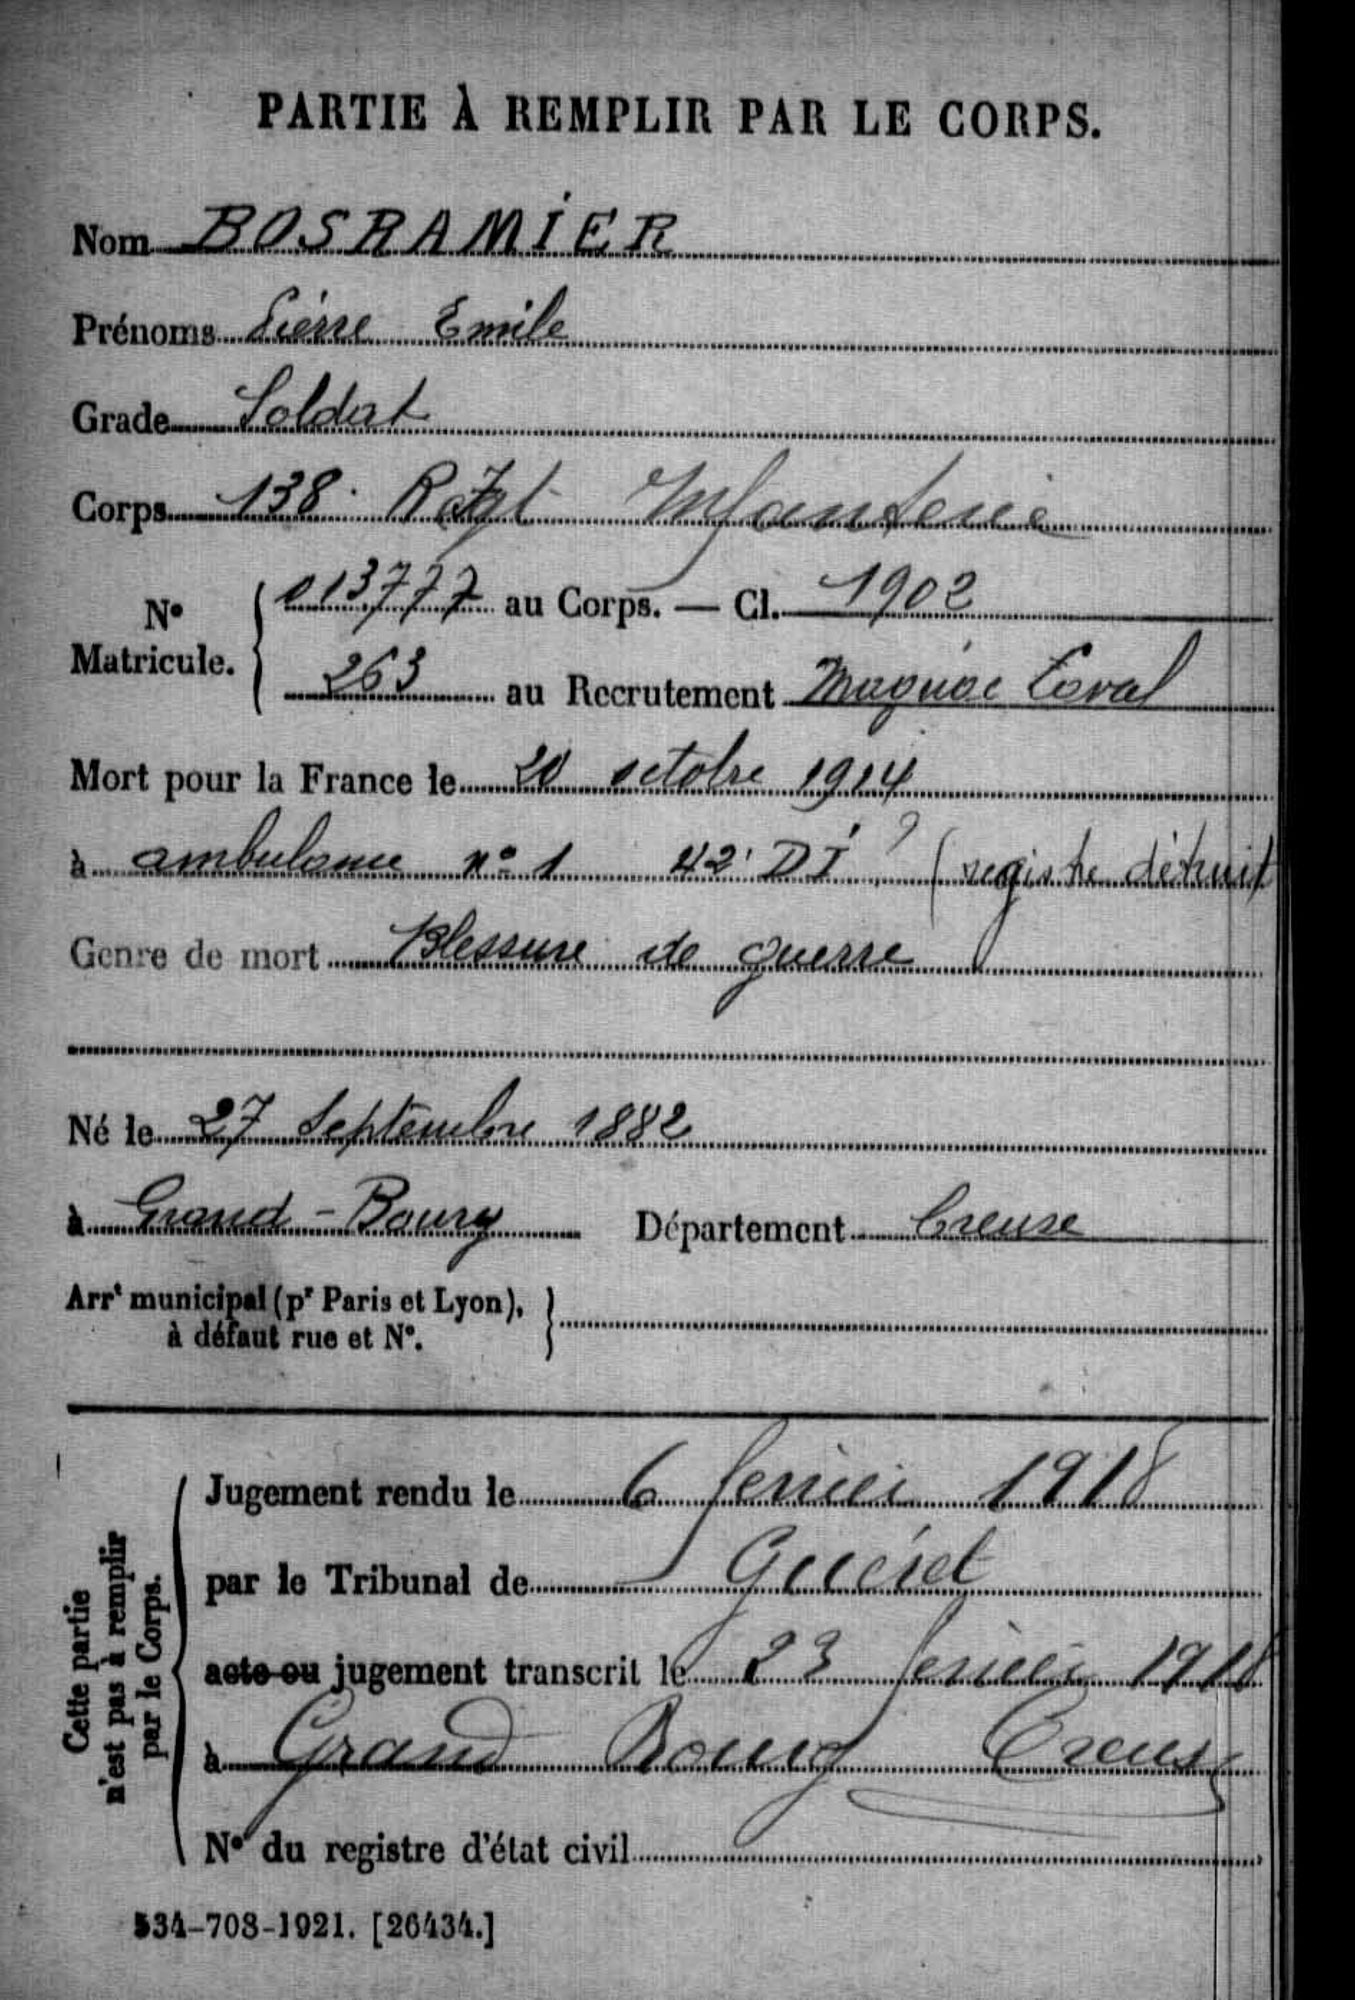 PARTIE À REMPLIR PAR LE CORPS.
Nom BOSRAMIER
Prénoms Pierre Emile
Grade Soldat
Corps 138 Regt Infanterie
N° Matricule. { 013777 au Corps. — Cl. 1902
263 au Recrutement Magnac Laval
Mort pour la France le 20 octobre 1914
à ambulance n° 1 42' DI ? (registre détruit)
Genre de mort Blessure de guerre
Né le 27 Septembre 1882
à Grand-Bourg Département Creuse
Arrt municipal (pr Paris et Lyon), }
à défaut rue et N°.
Cette partie
n'est pas à remplir
par le Corps.
Jugement rendu le 6 fevrier 1918
par le Tribunal de Guéret
acte ou jugement transcrit le 23 fevrier 1918
à Grand Bourg Creuse
N° du registre d'état civil
534-708-1921. [26434.]